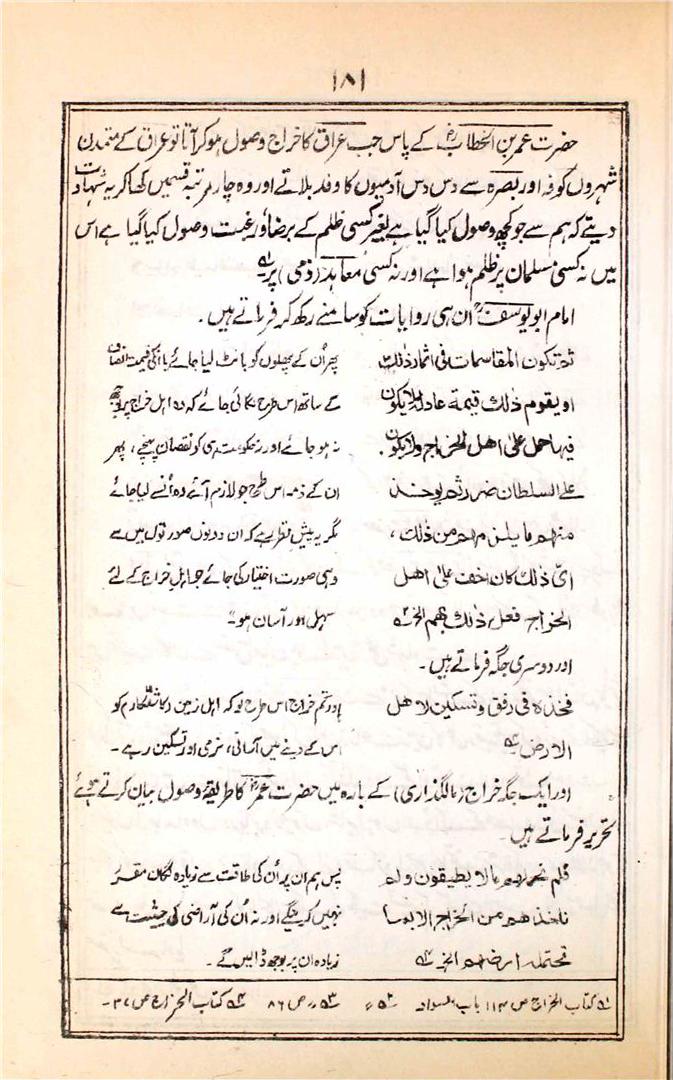 ۱۸۱
حضرت عمر بن الخطابؓ کے پاس جب عراق کا خراج وصول ہو کر آتا تو عراق کے متمدن
شہروں کوفہ اور بصرہ سے دس دس آدمیوں کا وفد بلاتے اور وہ چار مرتبہ قسمیں کھا کر یہ شہادت
دیتے کہ ہم سے جو کچھ وصول کیا گیا ہے بغیر کسی ظلم کے برضا و رغبت وصول کیا گیا ہے اس
میں نہ کسی مسلمان پر ظلم ہوا ہے اور نہ کسی معاہد (ذمی) پر ۱؎
امام ابو یوسفؒ ان ہی روایات کو سامنے رکھ کر فرماتے ہیں۔
ثم تکون المقاسمات فی اثمار ذلک
او یقوم ذلک قیمة عادلة لا یکون
فیها حمل علی اهل الخراج ولا یکون
علی السلطان ضرر ثم یوخذ
منهم ما یلزمهم من ذلک ،
ای ذلک کان اخف علی اهل
الخراج فعل ذلک بهم الخ ۲؎
پھر اُن کے پھلوں کو بانٹ لیا جائے یا انکی قیمت انصاف
کے ساتھ اس طرح لگائی جائے کہ وہ اہل خراج پر بوجھ
نہ ہو جائے اور نہ حکومت ہی کو نقصان پہنچے ، پھر
ان کے ذمہ اس طرح جو لازم آئے وہ اُنسے لیا جائے
مگر یہ پیش نظر رہے کہ ان دونوں صورتوں میں سے
وہی صورت اختیار کی جائے جو اہل خراج کے لئے
سہل اور آسان ہو۔"
اور دوسری جگہ فرماتے ہیں۔
فخذه فی رفق و تسکین لاهل
الارض ۳؎
اور تم خراج اس طرح لو کہ اہل زمین (کاشتکار) کو
اس کے دینے میں آسانی، نرمی اور تسکین رہے۔
اور ایک جگہ خراج (مالگذاری) کے بارہ میں حضرت عمرؓ کا طریقۂ وصول بیان کرتے ہوئے
تحریر فرماتے ہیں۔
فلم نحملهم ما لا یطیقون ولم
ناخذهم من الخراج الا بما
تحتمله ارضهم الخ ۴؎
پس ہم ان پر اُن کی طاقت سے زیادہ لگان مقرر
نہیں کرینگے اور نہ اُن کی آراضی کی حیثیت سے
زیادہ ان پر بوجھ ڈالیں گے۔
۱؎ کتاب الخراج ص ۱۱۴ باب السواد ۲؎ " ۳؎ " ص ۸۶ ۴؎ کتاب الخراج ص ۳۷۔